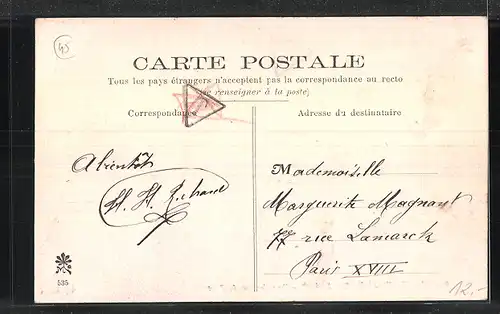 45
CARTE POSTALE
Tous les pays étrangers n'acceptent pas la correspondance au recto
(se renseigner à la poste)
Correspondance
Adresse du destinataire
A bientôt
Mademoiselle
Marguerite Magnant
77 rue Lamarck
Paris XVIII
535
12.-